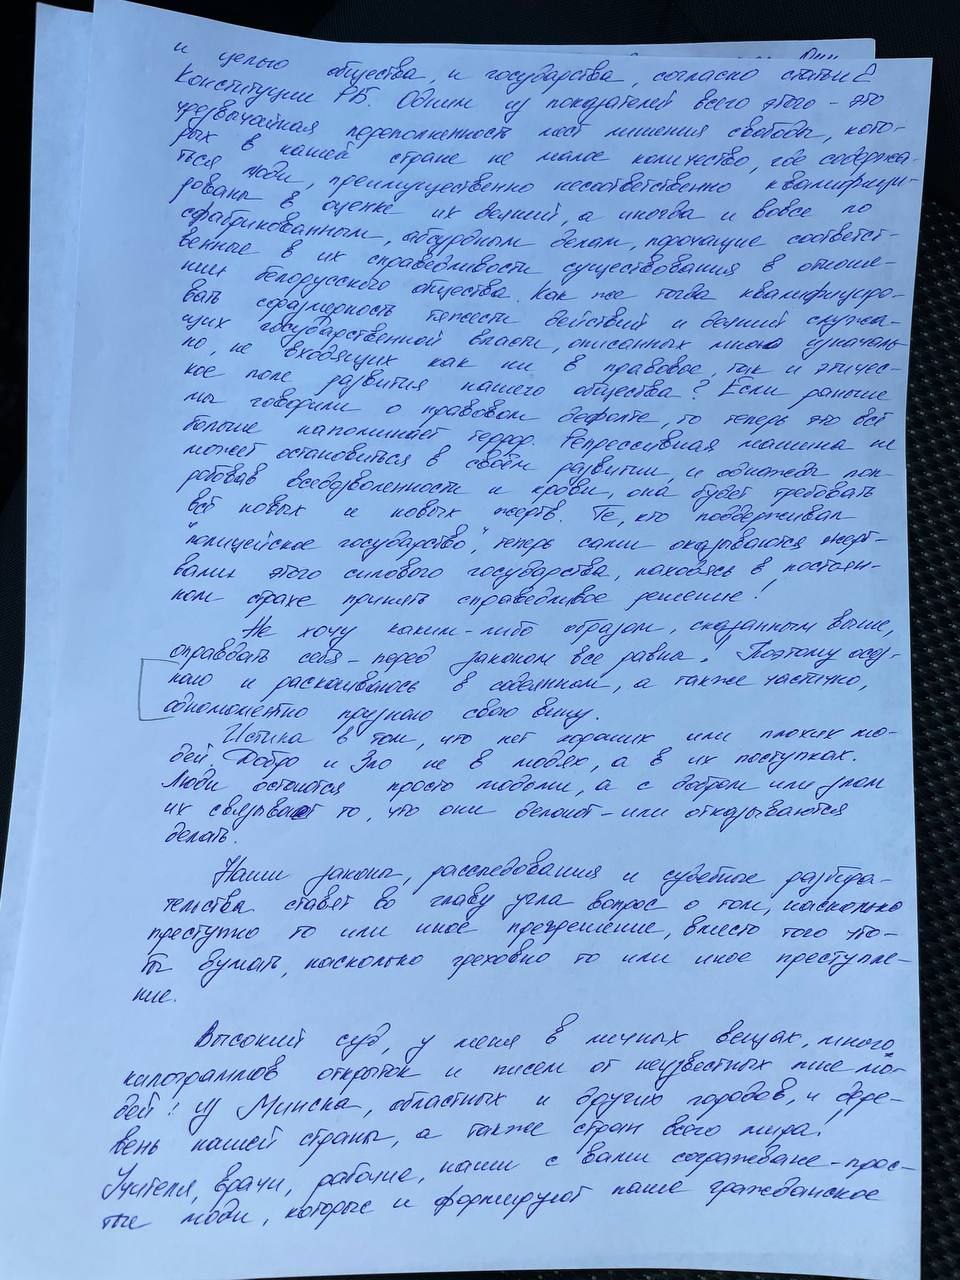 и целью общества, и государства, согласно статьи 2
Конституции РБ. Одним из показателей всего этого - это
чрезвычайная переполненность мест лишения свободы, кото-
рых в нашей стране не малое количество, где содержа-
ться люди, преимущественно несоответственно квалифици-
рованы в оценке их деяний, а иногда и вовсе по
сфабрикованным, абсурдным делам, порочащие соответст-
венные в их справедливости существования в отноше-
нии белорусского общества. Как же тогда квалифициро-
вать сфразмерность тяжести действий и деяний служа-
щих государственной власти, описанных мною изначаль
но, не входящих как ни в правовое, так и этичес-
кое поле развития нашего общества? Если раньше
мы говорили о правовом дефолте, то теперь это всё
больше напоминает террор. Репрессивная машина не
может остановиться в своём развитии, и однажды поп-
робовав вседозволенности и крови, она будет требовать
всё новых и новых жертв. Те, кто поддерживал
"полицейское государство", теперь сами оказываются жерт-
вами этого силового государства, находясь в постоян-
ном страхе принять справедливое решение!
Не хочу каким-либо образом, сказанным выше,
оправдать себя - перед законом все равны. Поэтому осоз-
наю и раскаиваюсь в содеянном, а также частично,
одномоментно признаю свою вину.
Истина в том, что нет хороших или плохих лю-
дей. Добро и Зло не в людях, а в их поступках.
Люди остаются просто людьми, а с добром или злом
их связывает то, что они делают - или отказываются
делать.
Наши законы, расследования и судебные разбира-
тельства ставят во главу угла вопрос о том, насколько
преступно то или иное прегрешение, вместо того что-
бы думать, насколько греховно то или иное преступле-
ние.
Высокий суд, у меня в личных вещах, много
килограммов открыток и писем от неизвестных мне лю-
дей! из Минска, областных и других городов, и дере-
вень нашей страны, а также стран всего мира!
Учителя, врачи, рабочие, наши с вами сограждане - прос-
тые люди, которые и формируют наше гражданское